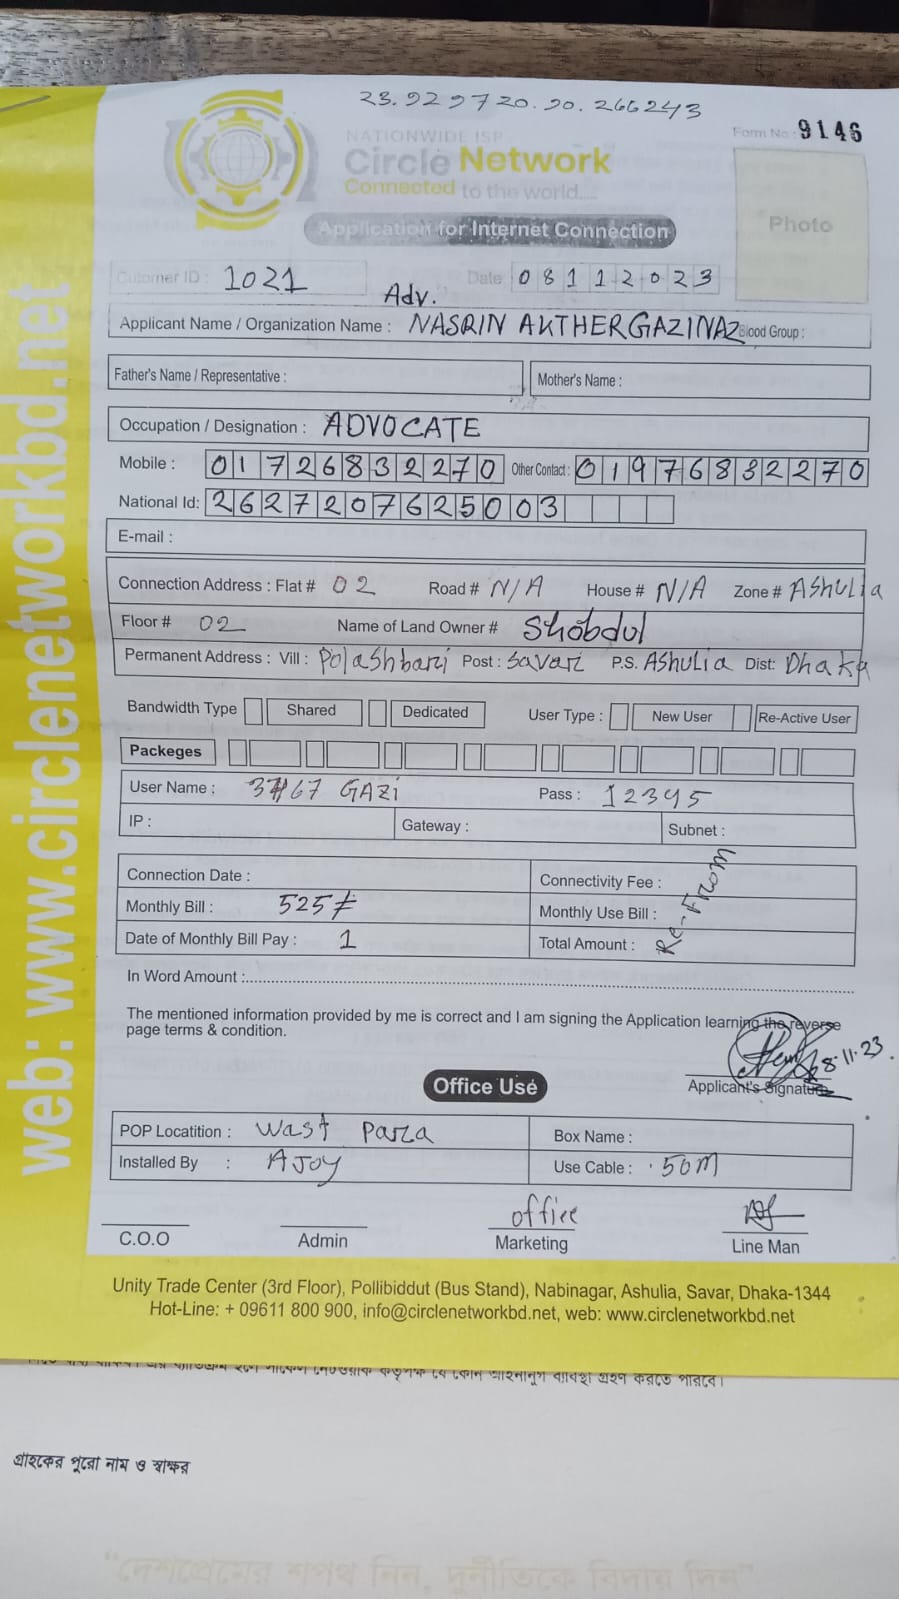 23.929720.90.266243
NATIONWIDE ISP
Form No : 9146
Circle Network
Connected to the world....
Photo
Application for Internet Connection
Cutomer ID : 1021
Date 08112023
Adv.
Applicant Name / Organization Name : NASRIN AKTHER GAZINAZ Blood Group :
Father's Name / Representative :
Mother's Name :
Occupation / Designation : ADVOCATE
Mobile : 01726832270 Other Contact : 01976832270
National Id: 2627207625003
E-mail :
Connection Address : Flat # 02 Road # N/A House # N/A Zone # AShuLia
Floor # 02 Name of Land Owner # Shobdul
Permanent Address : Vill : Polashbari Post : Savari P.S. AShuLia Dist: Dhaka
Bandwidth Type Shared Dedicated User Type : New User Re-Active User
Packeges
User Name : GAZi Pass : 12345
IP : Gateway : Subnet :
Connection Date : Connectivity Fee :
Monthly Bill : 525/= Monthly Use Bill :
Date of Monthly Bill Pay : 1 Total Amount :
Re-From
In Word Amount :
The mentioned information provided by me is correct and I am signing the Application learning the reverse
page terms & condition.
8.11.23
Applicant's Signature
Office Use
POP Locatition : Wast Para Box Name :
Installed By : AJoy Use Cable : 50M
office
C.O.O Admin Marketing Line Man
Unity Trade Center (3rd Floor), Pollibiddut (Bus Stand), Nabinagar, Ashulia, Savar, Dhaka-1344
Hot-Line: + 09611 800 900, info@circlenetworkbd.net, web: www.circlenetworkbd.net
web: www.circlenetworkbd.net
গ্রাহকের পুরো নাম ও স্বাক্ষর
“দেশপ্রেমের শপথ নিন, দুর্নীতিকে বিদায় দিন”